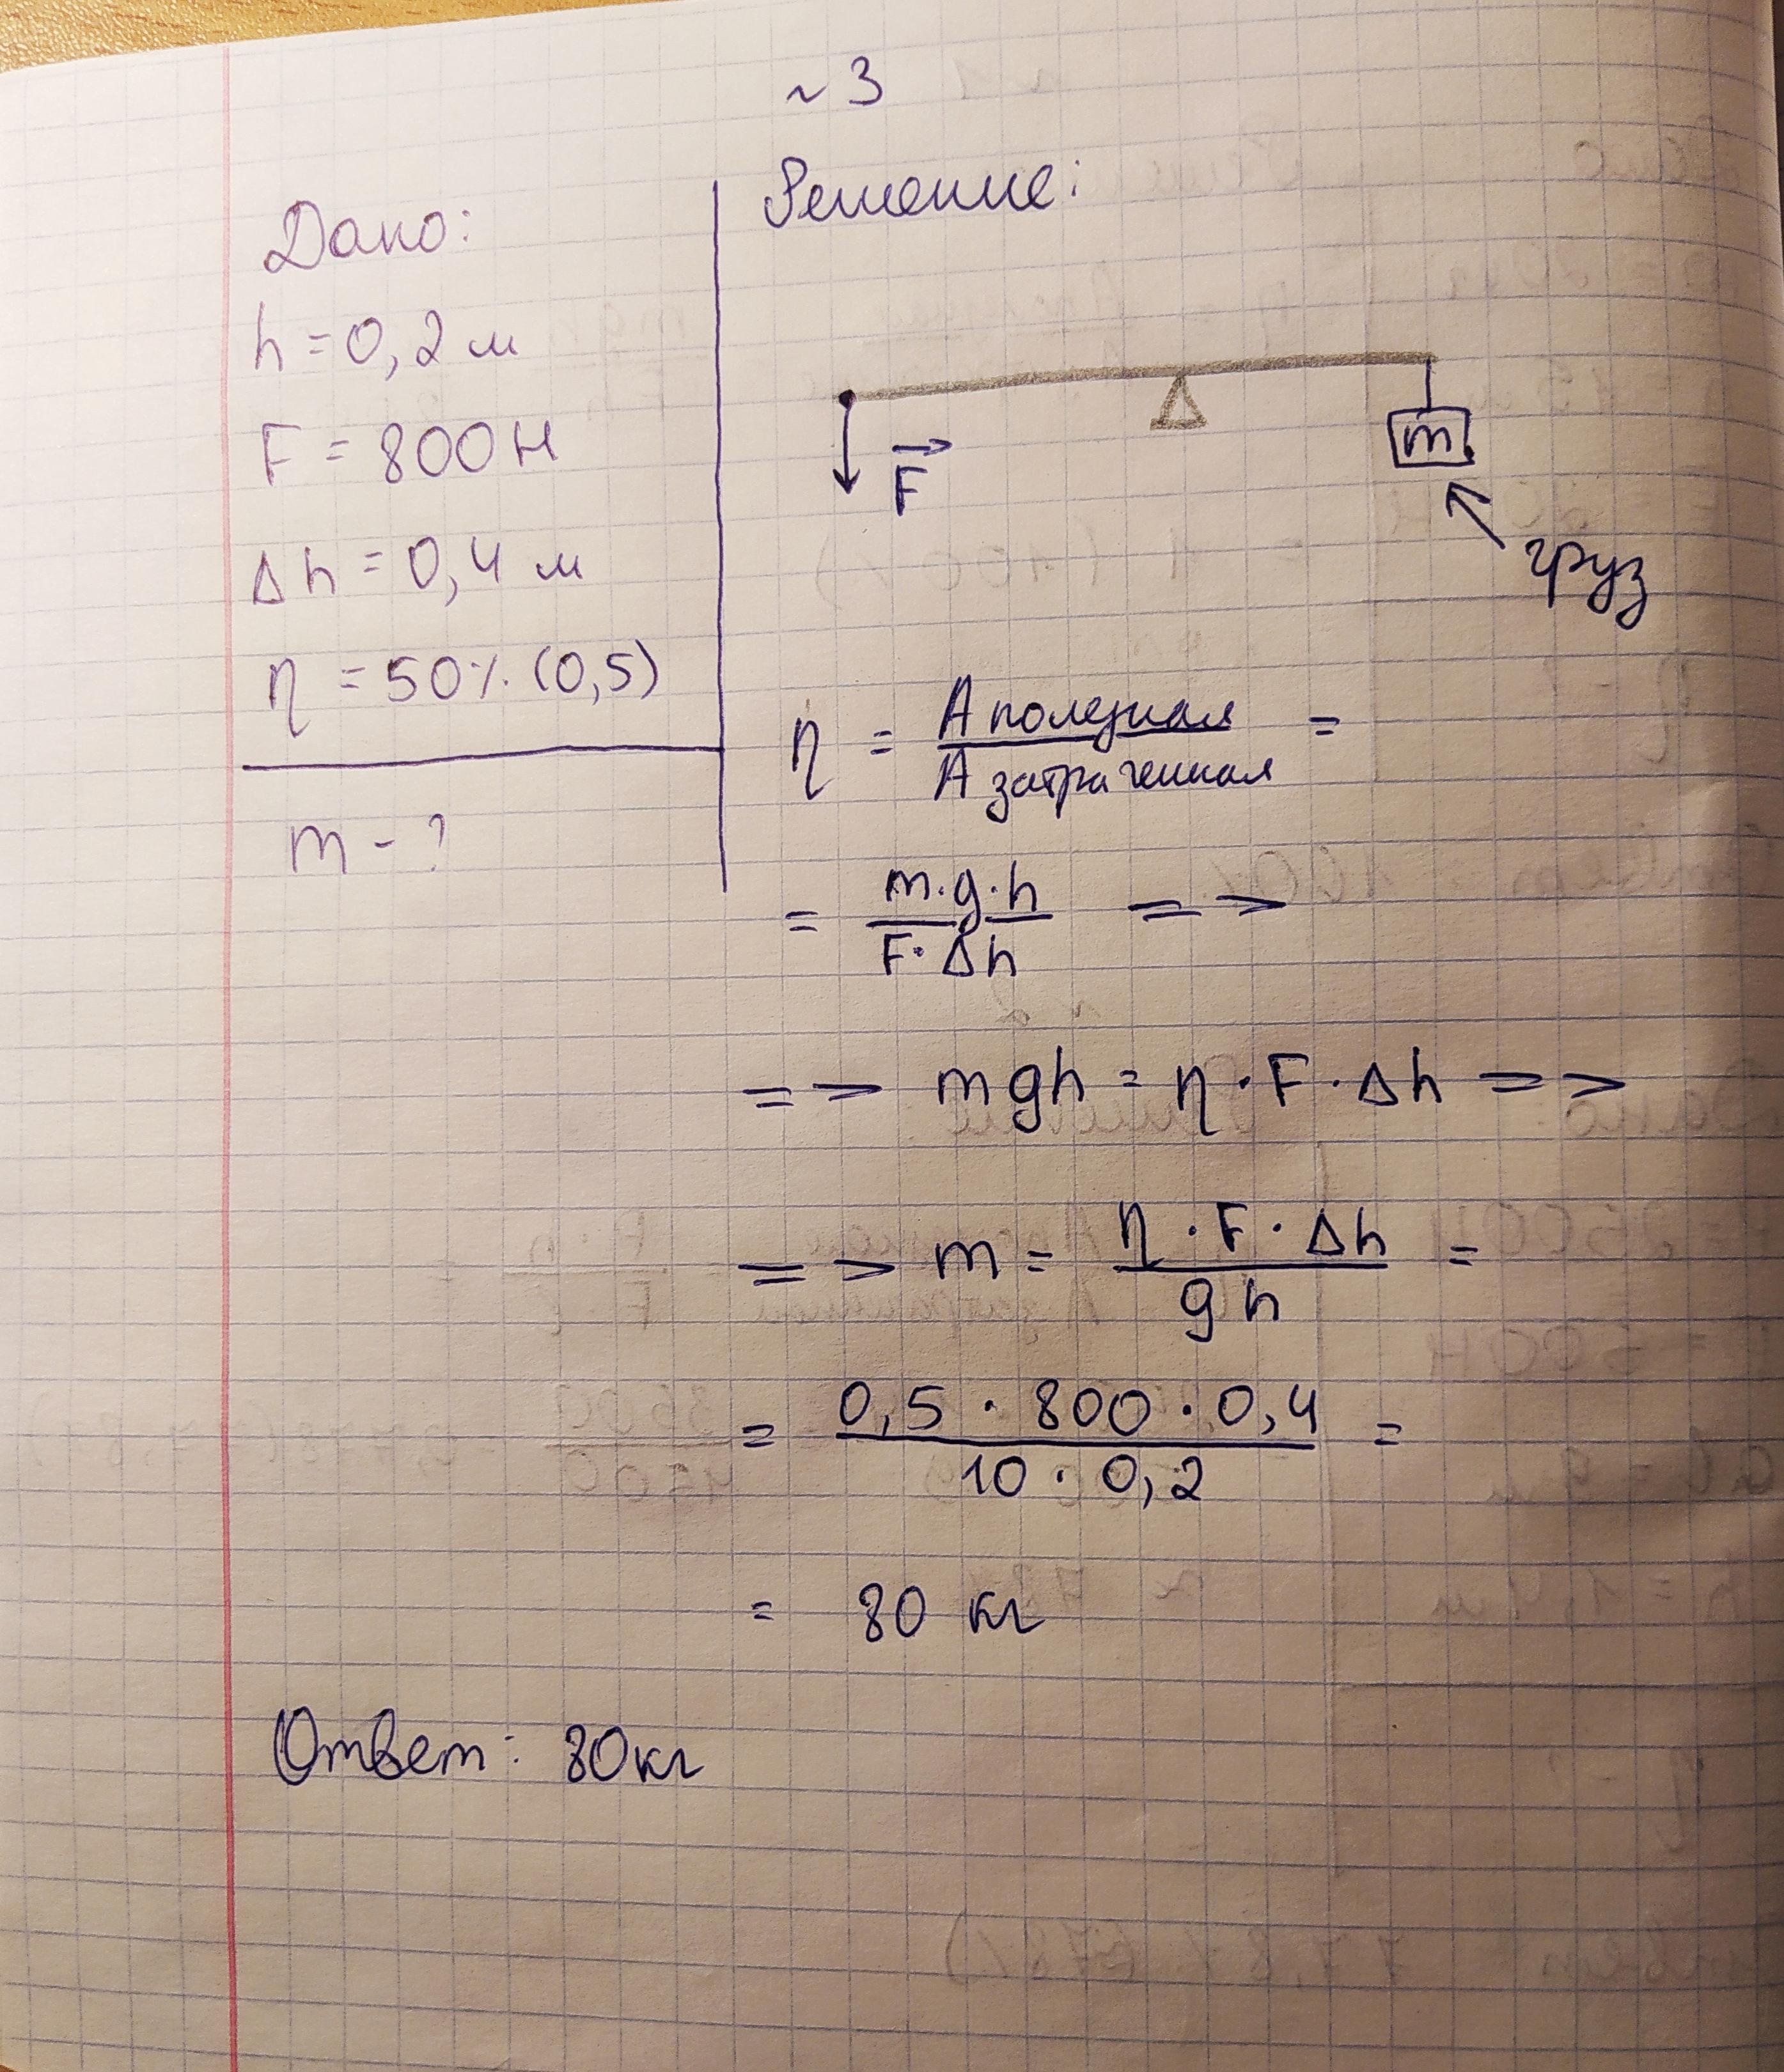 ~ 3
Дано:
h = 0,2 м
F = 800 Н
Δh = 0,4 м
η = 50% (0,5)
m - ?
Решение:
F
m
груз
η = A полезная / A затраченная =
= m·g·h / F·Δh =>
=> mgh = η · F · Δh =>
=> m = η · F · Δh / gh =
= 0,5 · 800 · 0,4 / 10 · 0,2 =
= 80 кг
Ответ: 80кг